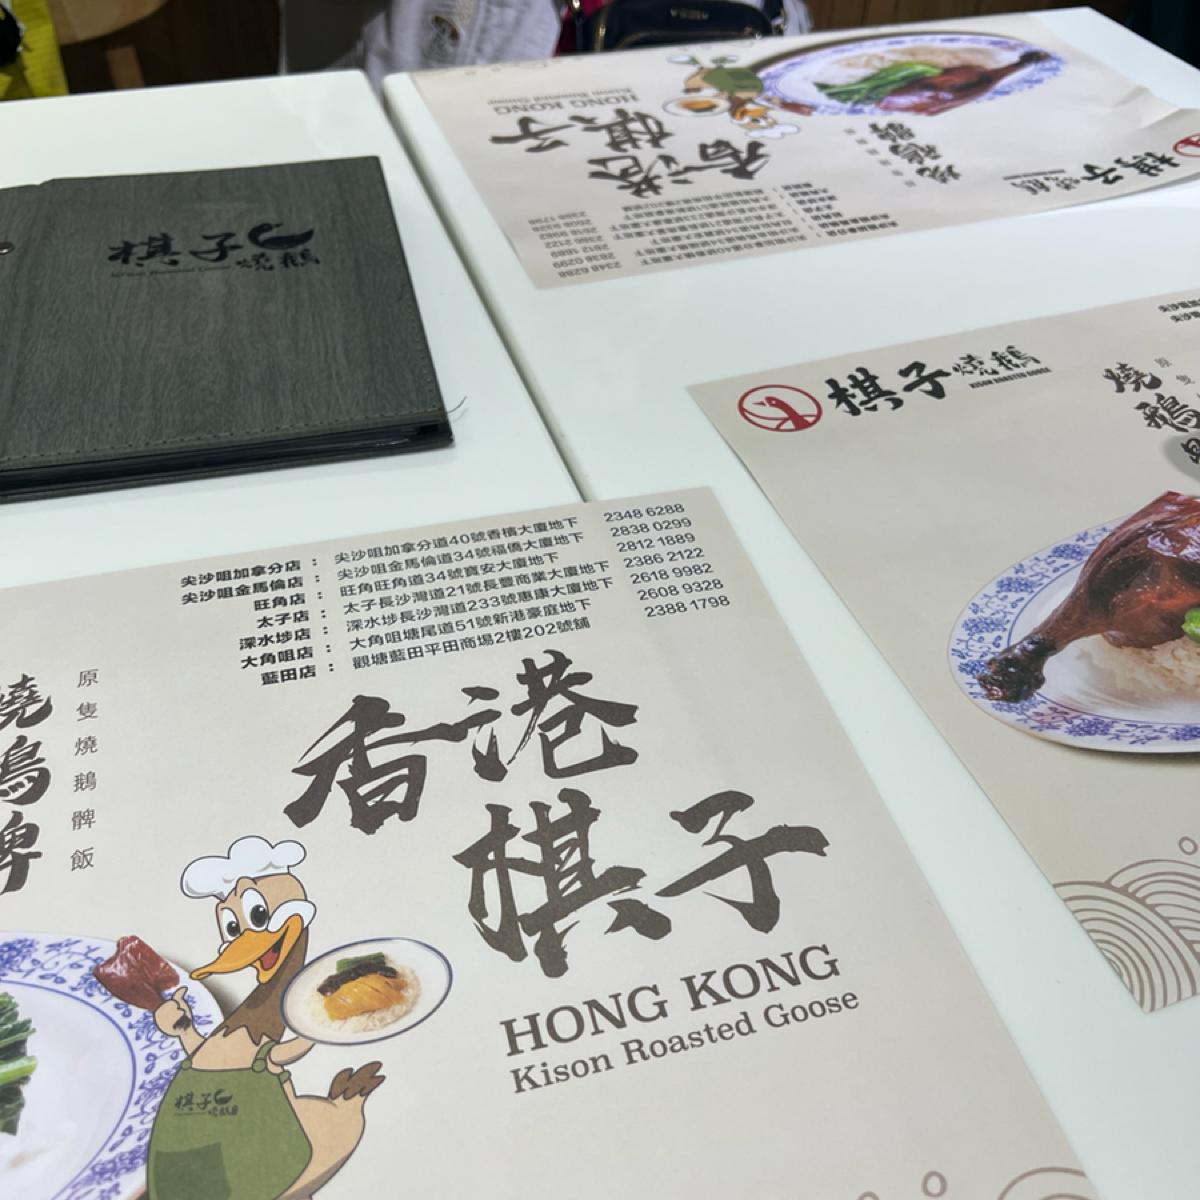 棋子
燒鵝
香港
棋子
HONG KONG
Kison Roasted Goose
燒鵝髀
棋子燒鵝
棋子燒鵝
KISON ROASTED GOOSE
燒鵝
原隻
尖沙咀加拿分店 : 尖沙咀加拿分道40號香檳大廈地下 2348 6288
尖沙咀金馬倫店 : 尖沙咀金馬倫道34號福僑大廈地下 2838 0299
旺角店 : 旺角旺角道34號寶安大廈地下 2812 1889
太子店 : 太子長沙灣道21號長豐商業大廈地下 2386 2122
深水埗店 : 深水埗長沙灣道233號惠康大廈地下 2618 9982
大角咀店 : 大角咀塘尾道51號新港豪庭地下 2608 9328
藍田店 : 觀塘藍田平田商場2樓202號舖 2388 1798
燒鵝髀
原隻燒鵝髀飯
香港
棋子
HONG KONG
Kison Roasted Goose
棋子
燒鵝